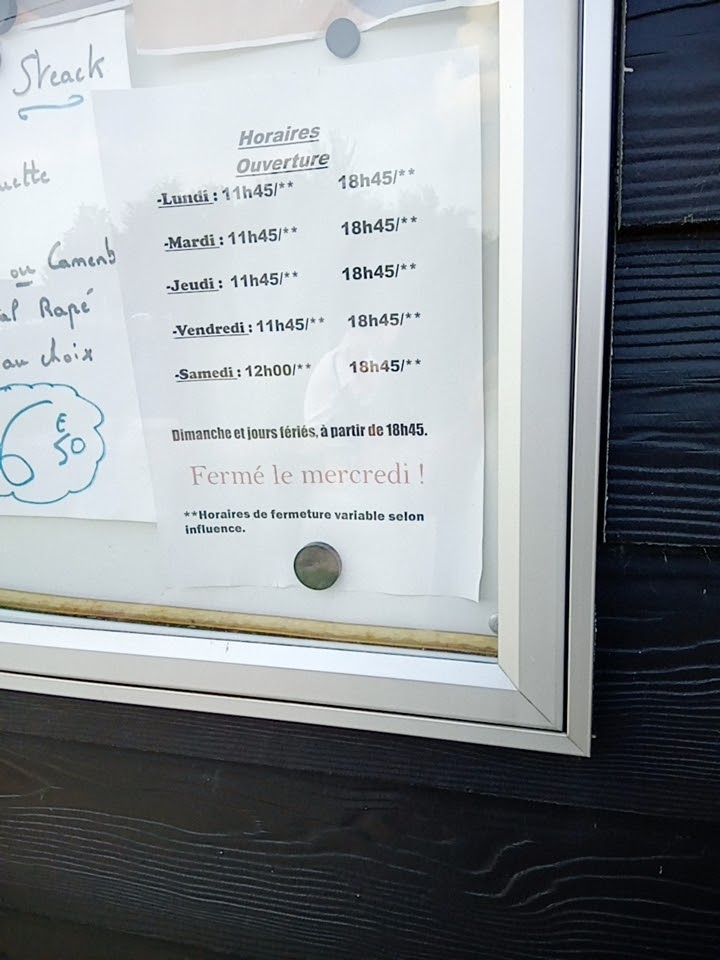 Steack
ou Camenb
Rapé
au choix
6 € 50
Horaires
Ouverture
-Lundi : 11h45/** 18h45/**
-Mardi : 11h45/** 18h45/**
-Jeudi : 11h45/** 18h45/**
-Vendredi : 11h45/** 18h45/**
-Samedi : 12h00/** 18h45/**
Dimanche et jours fériés, à partir de 18h45.
Fermé le mercredi !
**Horaires de fermeture variable selon
influence.